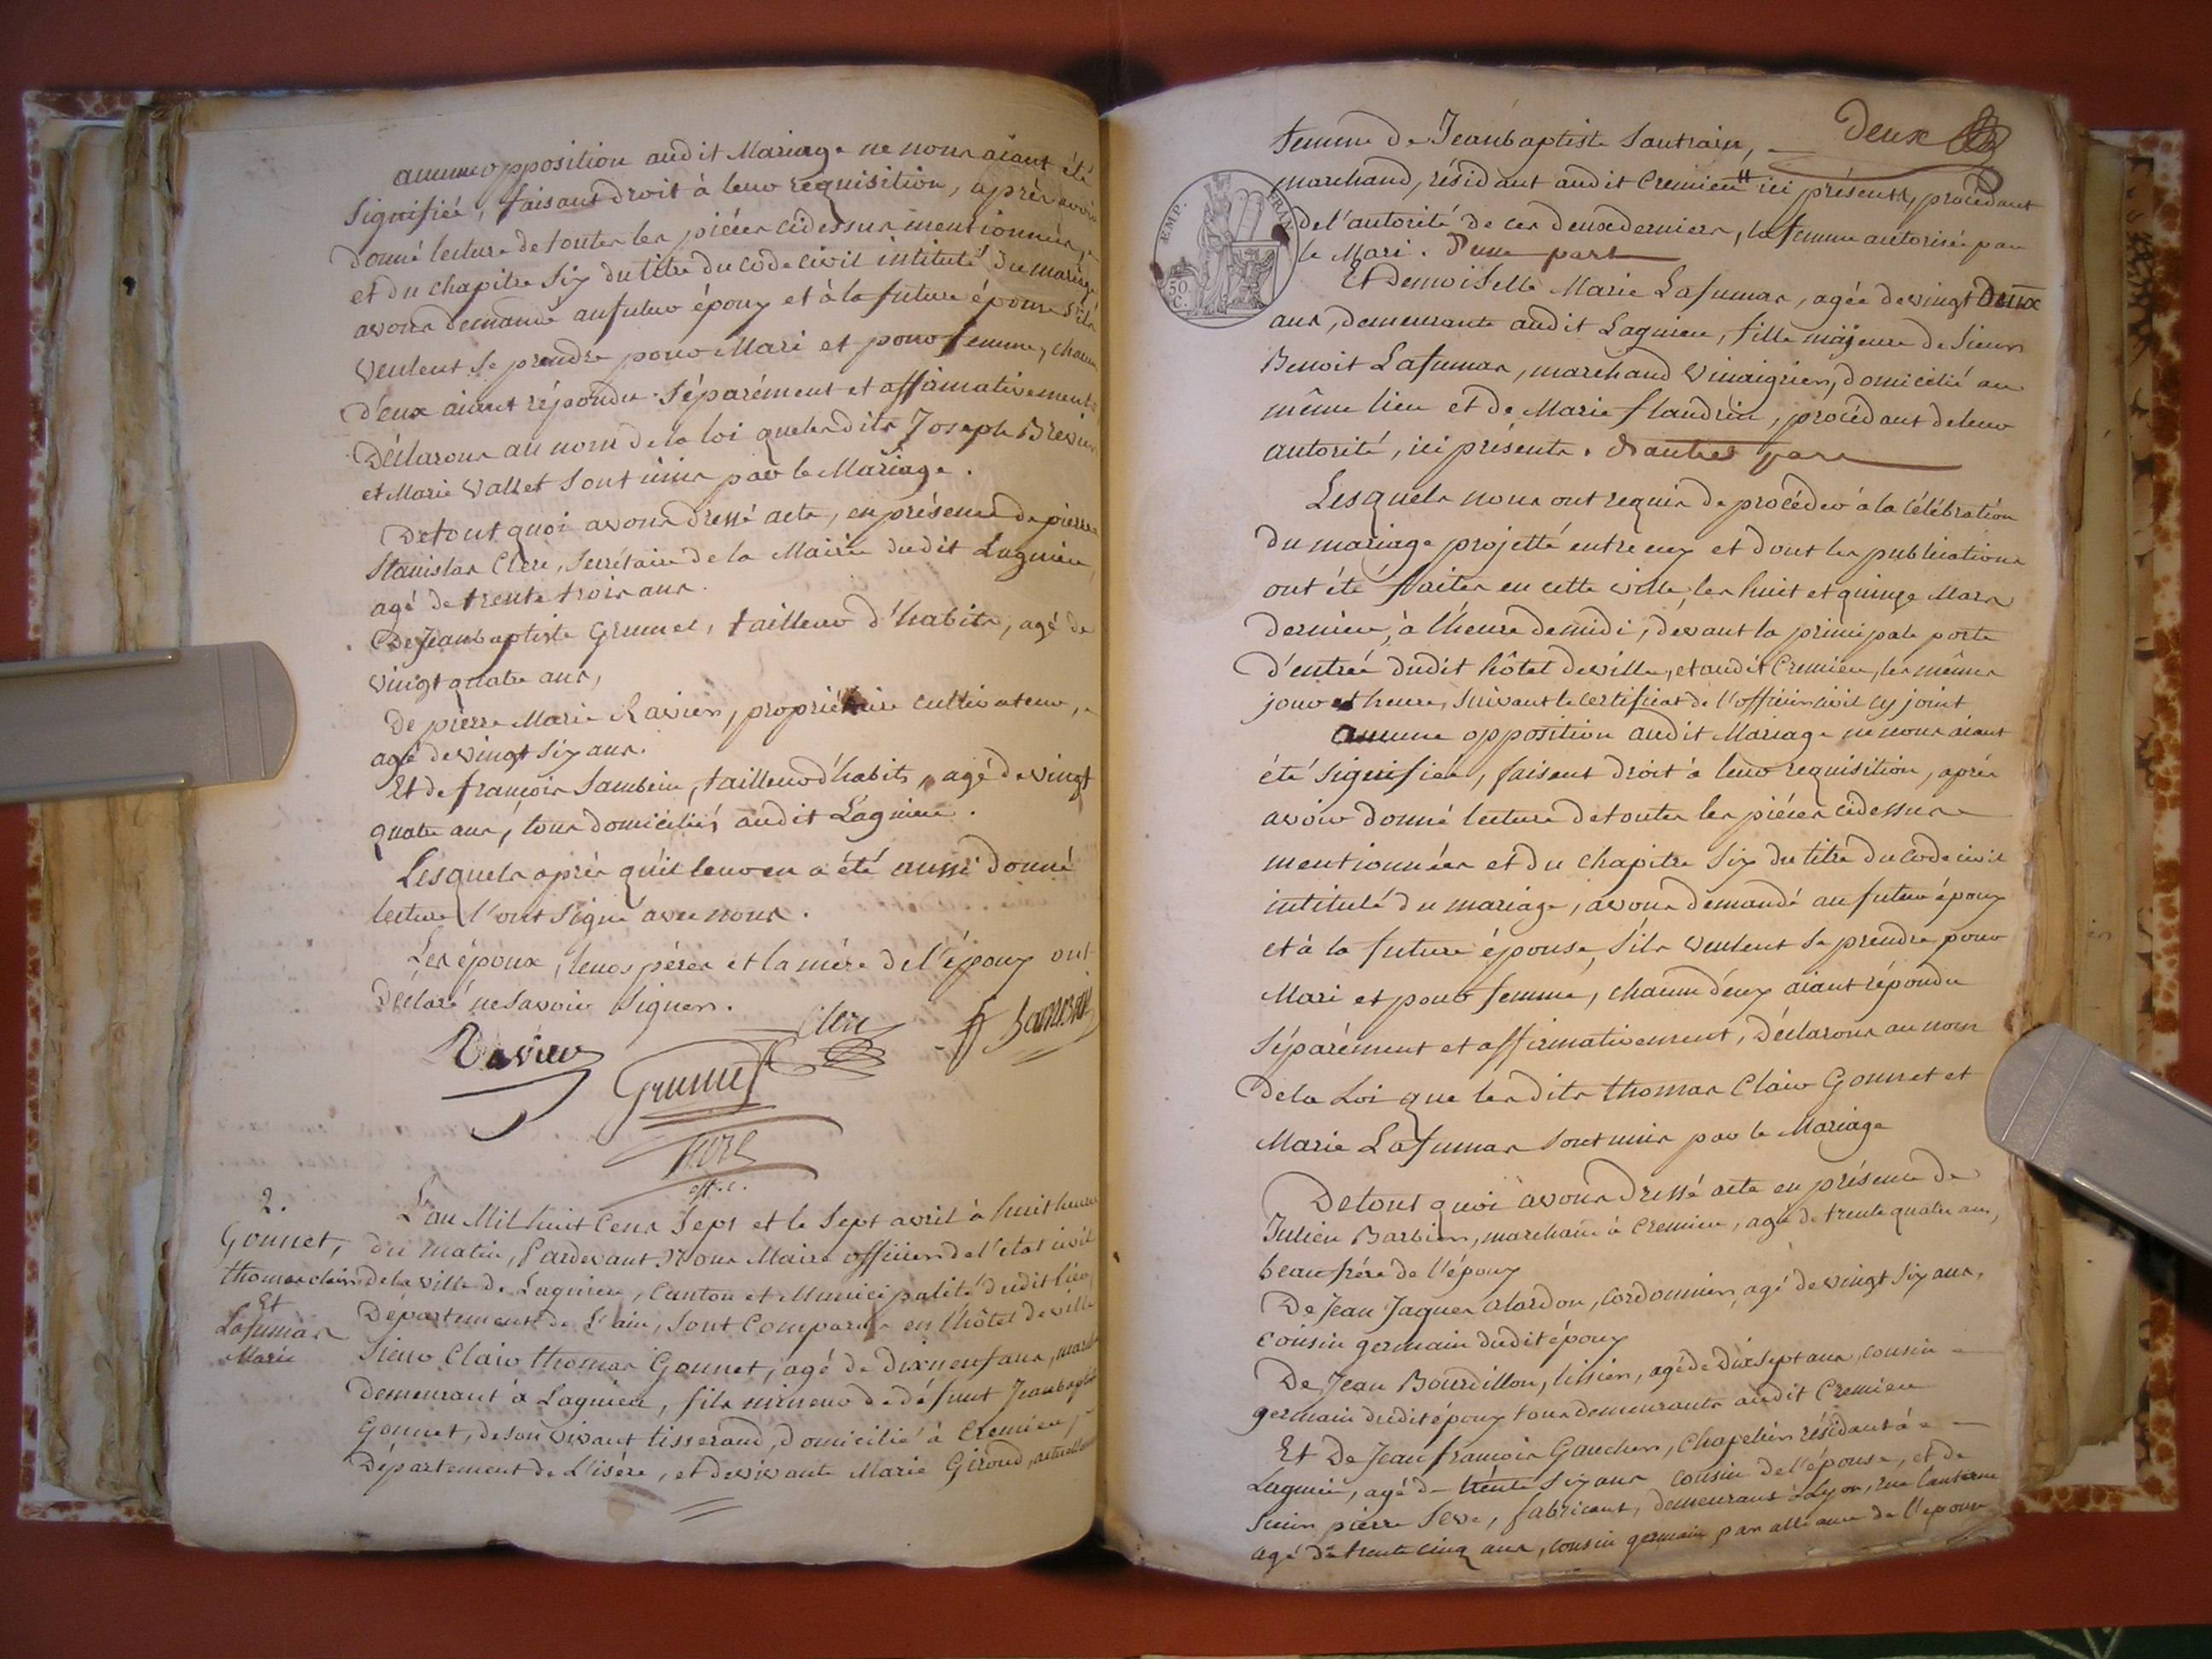 aucune opposition audit Mariage ne nous aiant été
signifiée, faisant droit à leur requisition, après avoir
donné lecture de toutes les pièces cidessus mentionnées,
et du chapitre Six du titre du code civil intitulé du mariage
avons demandé au futur époux et à la future épouse s'ils
veulent se prendre pour Mari et pour femme, chacun
d'eux aiant répondu séparément et affirmativement
Déclarons au nom de la loi que lesdits Joseph
et Marie Vallet sont unis par le Mariage.
De tout quoi avons dressé acte, en présence de pierre
Stanislas Clerc, Secrétaire de la Mairie dudit Lagnieu,
agé de trente trois ans.
De Jeanbaptiste Grumet, tailleur d'habits, agé de
vingt quatre ans,
De pierre Marie Ravier, propriétaire cultivateur,
agé de vingt Six ans.
Et de françois Sambein, tailleur d'habits, agé de vingt
quatre ans, tous domiciliés audit Lagnieu.
Lesquels après qu'il leur en a été aussi donné
lecture l'ont signé avec nous.
Les époux, leurs pères et la mère de l'époux ont
Déclaré ne savoir signer.
Clerc
Ravier
Grumet
off. c.
2.
Gonnet,
thomas clair
Et
Lafumas
Marie
L'an Mil huit Cens Sept et le Sept avril à huit heures
du matin, Pardevant Nous Maire officier de l'état civil
de la ville de Lagnieu, Canton et Municipalité dudit lieu
Département de L'ain, sont Comparus en l'hôtel de ville
Sieur Clair thomas Gonnet, agé de Dixneuf ans,
demeurant à Lagnieu, fils mineur de défunt Jeanbaptiste
Gonnet, de son vivant tisserand, domicilié à Cremieu,
Département de L'isére, et de vivante Marie Giroud, actuellement
Deux
femme de Jeanbaptiste Santrain,
marchand, résidant audit Cremieu ici présents, procédant
de l'autorité de ces deux derniers, la femme autorisée par
le Mari. D'une part
EMP. FRAN.
50
C.
Et Demoiselle Marie Lafumas, agée de vingt Deux
ans, demeurante audit Lagnieu, fille majeure de Sieur
Benoit Lafumas, marchand Vinaigrier, domicilié au
même lieu et de Marie flandrin, procédant de leur
autorité, ici présents. D'autre part
Lesquels nous ont requis de procéder à la célébration
du mariage projetté entre eux et dont les publications
ont été faites en cette ville, les huit et quinze Mars
dernier, à l'heure de midi, devant la principale porte
d'entrée dudit hôtel de ville, et audit Cremieu, les mêmes
jour et heure, suivant le certificat de l'officier civil cy joint
Aucune opposition audit Mariage ne nous aiant
été signifiée, faisant droit à leur requisition, après
avoir donné lecture de toutes les pièces cidessus
mentionnées et du chapitre Six du titre du code civil
intitulé du mariage, avons demandé au futur époux
et à la future épouse, s'ils veulent se prendre pour
Mari et pour femme, chacun d'eux aiant répondu
séparément et affirmativement, Déclarons au nom
de la Loi que lesdits thomas Clair Gonnet et
Marie Lafumas sont unis par le Mariage
De tout quoi avons dressé acte en présence de
Julien Barbier, marchand à Cremieu, agé de trente quatre ans,
beau frère de l'époux
De Jean Jaques Alardon, Cordonnier, agé de vingt Six ans,
cousin germain dudit époux
De Jean Bourdillon, agé de Dix Sept ans, cousin
germain dudit époux tous demeurants audit Cremieu
Et De Jean françois Gaucher, Chapelier résidant à
Lagnieu, agé de trente Six ans cousin de l'épouse, et de
Sieur pierre Seve, fabricant, demeurant à Lyon, rue Lanterne
agé de trente cinq ans, cousin germain par alliance de l'épouse